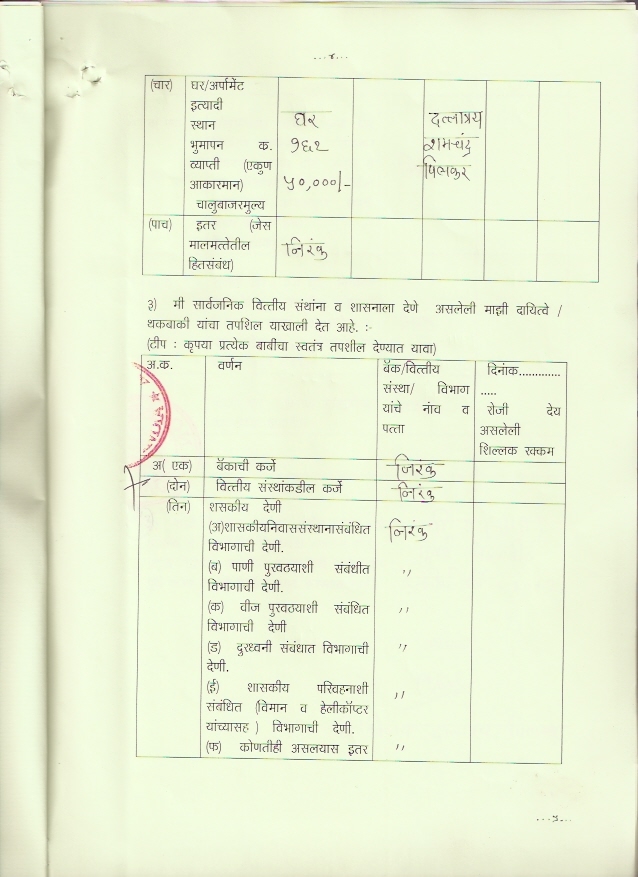 ...४...
(चार) घर/अर्पामेंट
इत्यादी
स्थान घर दत्तात्रय
भुमापन क. १६२ रामचंद्र
व्याप्ती (एकुण पिलकर
आकारमान) ५०,०००/-
चालुबाजरमुल्य
(पाच) इतर (जेस
मालमत्तेतील निरंक
हितसंबंध)
३) मी सार्वजनिक वित्तीय संथांना व शासनाला देणे असलेली माझी दायित्वे /
थकबाकी यांचा तपशिल याखाली देत आहे. :-
(टीप : कृपया प्रत्येक बाबीचा स्वतंत्र तपशील देण्यात यावा)
अ.क. वर्णन बॅक/वित्तीय दिनांक.............
संस्था/ विभाग .....
यांचे नांव व रोजी देय
पत्ता असलेली
शिल्लक रक्कम
अ( एक) बॅकाची कर्जे निरंक
(दोन) वित्तीय संस्थांकडील कर्जे निरंक
(तिन) शसकीय देणी
(अ)शासकीयनिवाससंस्थानासंबंधित निरंक
विभागाची देणी.
(ब) पाणी पुरवठयाशी संबंधीत ,,
विभागाची देणी.
(क) वीज पुरवठयाशी संबंधित ,,
विभागाची देणी
(ड) दुरध्वनी संबंधात विभागाची ,,
देणी.
(ई) शासकीय परिवहनाशी
संबंधित (विमान व हेलीकॉप्टर ,,
यांच्यासह ) विभागाची देणी.
(फ) कोणतीही असलयास इतर ,,
...५...